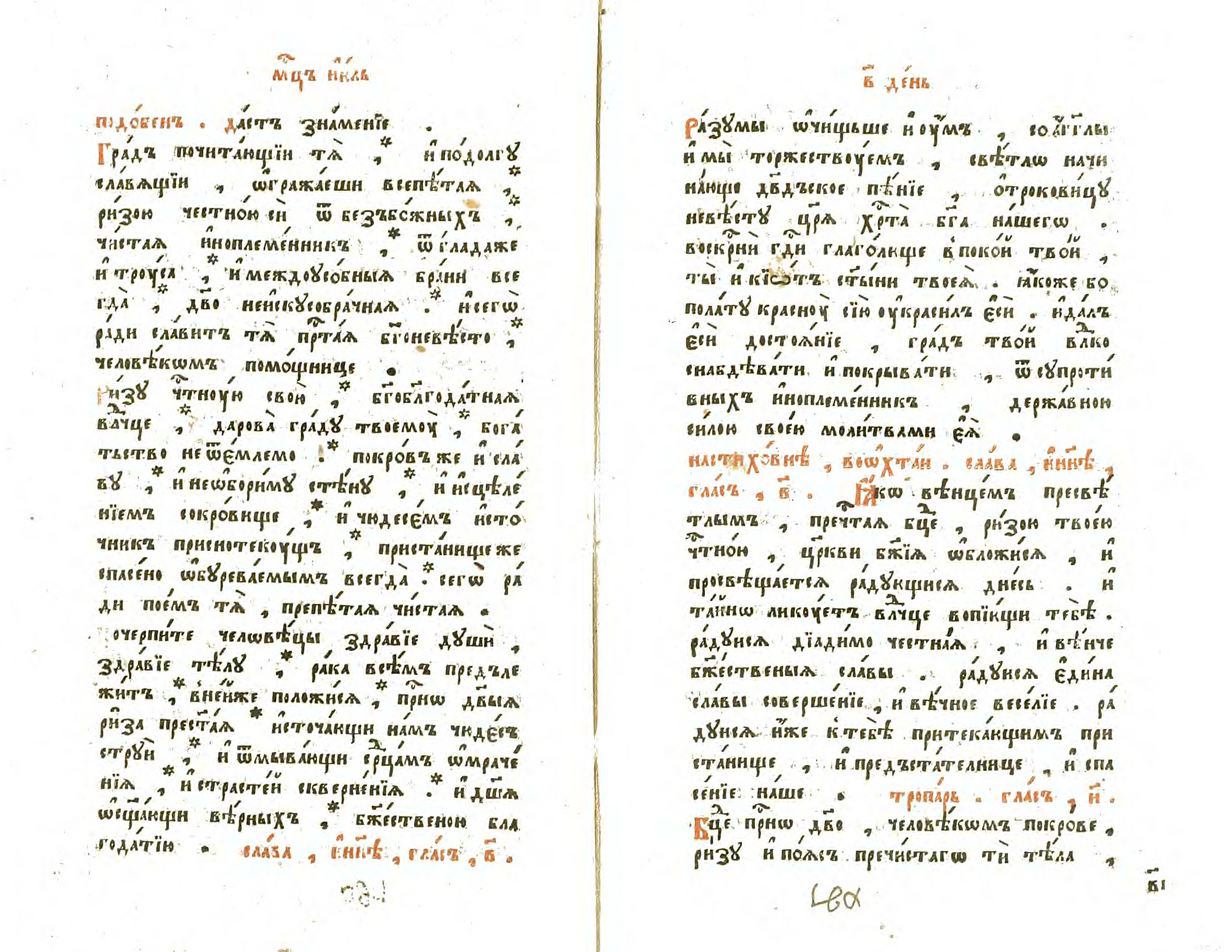 мц҃ъ і҆ю́ль
подо́бенъ . да́стъ зна́менїе .
Гра́дъ почита́ющїи тѧ̀ , * и҆ подо́лгꙋ
сла́вѧщїи , ѡ҆гражда́еши всепѣ́таѧ , *
ри́зою честно́ю сѝ ѿ безъбо́жныхъ , *
чи́стаѧ и҆ноплеме́нникъ , * ѿ гла́да же
и҆ трꙋ́са , * и҆ междоусо́бныѧ бра́ни все
гда̀ , * дв҃о неи҆скꙋсобра́чнаѧ . * и҆ сегѡ̀
ра́ди сла́витъ тѧ̀ прⷭ҇таѧ бг҃оневѣ́сто , *
человѣ́кѡмъ помо́щнице .
Ри́зꙋ чⷭ҇тнꙋ́ю свою̀ , * бг҃обл҃года́тнаѧ
влⷣчце , * дарова̀ гра́дꙋ твоемꙋ̀ , * бога́
тьство неѿе́млемо . * покро́въ же и҆ сла́
вꙋ , * и҆ неѡбори́мꙋ стѣ́нꙋ , * и҆ и҆сцѣле́
нїемъ сокро́вище , * и҆ чюдесе́мъ и҆сто́
чникъ приснотекꙋ́щъ , * приста́нище же
спасе́но ѡ҆бꙋрева́емымъ всегда̀ . * сегѡ̀ ра́
ди пое́мъ тѧ̀ , препѣ́таѧ чи́стаѧ .
почерпи́те челѡвѣ́цы здра́вїе дꙋшѝ ,
здра́вїе тѣ́лꙋ , * ра́ка всѣ́мъ предъле
жи́тъ , * в не́йже положи́сѧ , * при́снѡ дв҃ыѧ
ри́за прест҃а́ѧ * и҆сточа́ющи на́мъ чюде́съ
стрꙋѝ , * и҆ ѿмыва́ющи срⷣца́мъ ѡ҆мраче́
нїѧ , * и҆ страсте́й скверне́нїѧ . * и҆ дш҃а
ѡ҆сщ҃а́ющи вѣ́рныхъ , * бж҃е́ственою бла
года́тїю . сла́ва , и҆ нн҃ѣ , гла́съ , в҃ .
в҃ де́нь
Ра́зꙋмы ѡ҆чи́щьше и҆ оу҆́мъ , со а҆́гг҃лы
и҆ мы̀ торжествꙋ́емъ , свѣ́тлѡ начи
на́юще дв҃дъское пѣ́нїе , ѻ҆трокови́цꙋ
невѣ́стꙋ цр҃ѧ̀ хрⷭ҇та̀ бг҃а на́шегѡ .
воскрⷭ҇нѝ гдⷭ҇и глаго́люще в поко́й тво́й ,
ты̀ и҆ кїво́тъ ст҃ы́ни твоеѧ̀ . ꙗ҆́коже бо
пола́тꙋ краснꙋ̀ сїю̀ оу҆краси́лъ є҆сѝ . и҆ да́лъ
є҆сѝ достоѧ́нїе , гра́дъ тво́й влⷣко
снабдѣва́ти и҆ покрыва́ти , ѿ сꙋпроти́
вныхъ и҆ноплеме́нникъ , держа́вною
си́лою свое́ю моли́твами є҆ѧ̀ .
на стихо́внѣ , во ѻ҆хта́и . сла́ва , и҆ нн҃ѣ ,
гла́съ , в҃ . Ꙗ҆́кѡ вѣнце́мъ пресвѣ́
тлымъ , пречⷭ҇таѧ бц҃е , ри́зою твое́ю
чⷭ҇тно́ю , цр҃кви бж҃їѧ ѡ҆бложи́сѧ , и҆
просвѣща́етсѧ ра́дꙋющисѧ дне́сь . и҆
та́йнѡ ликꙋ́етъ влⷣчце вопїю́щи тебѣ̀ .
ра́дꙋисѧ дїади́мо честна́ѧ , и҆ вѣ́нче
бж҃е́ственыѧ сла́вы . ра́дꙋисѧ є҆ди́на
сла́вы соверше́нїе , и҆ вѣ́чное весе́лїе . ра́
дꙋисѧ и҆́же к тебѣ̀ притека́ющимъ при
ста́нище , и҆ предъста́телнице , и҆ спа
се́нїе на́ше . тропа́рь . гла́съ , и҃ .
Бц҃е при́снѡ дв҃о , человѣ́кѡмъ покро́ве ,
ри́зꙋ и҆ по́ѧсъ пречи́стагѡ тѝ тѣ́ла ,
в҃і